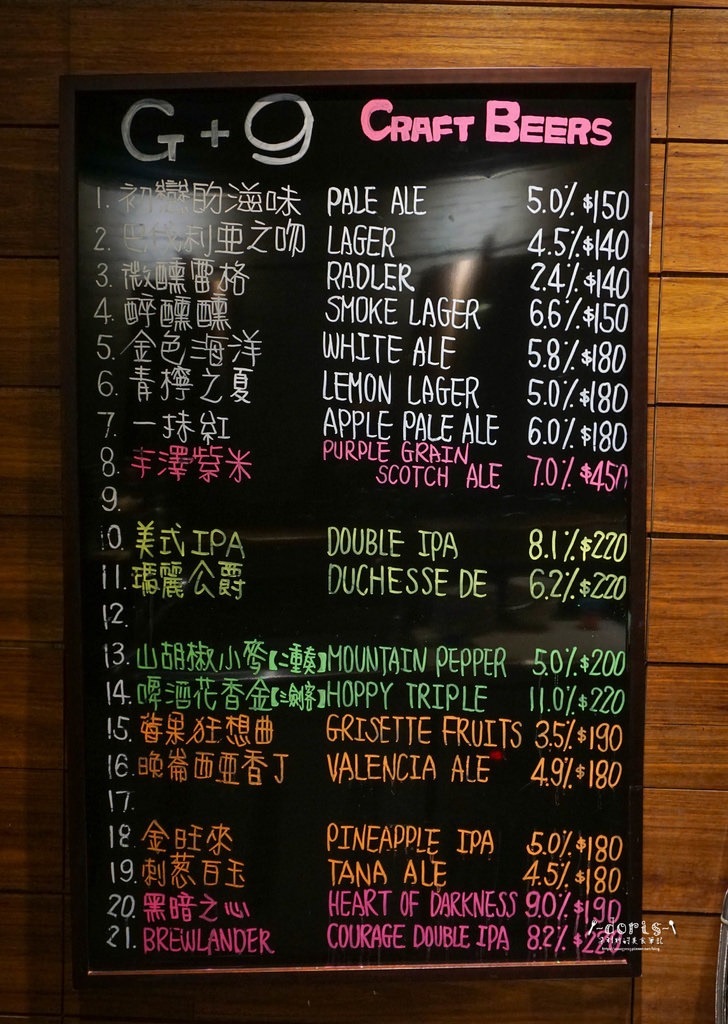 G+9 CRAFT BEERS
1. 初戀的滋味 PALE ALE 5.0% $150
2. 巴伐利亞之吻 LAGER 4.5% $140
3. 微醺雷格 RADLER 2.4% $140
4. 醉醺醺 SMOKE LAGER 6.6% $150
5. 金色海洋 WHITE ALE 5.8% $180
6. 青檸之夏 LEMON LAGER 5.0% $180
7. 一抹紅 APPLE PALE ALE 6.0% $180
8. 丰澤紫米 PURPLE GRAIN SCOTCH ALE 7.0% $450
9.
10. 美式IPA DOUBLE IPA 8.1% $220
11. 瑪麗公爵 DUCHESSE DE 6.2% $220
12.
13. 山胡椒小麥【二重奏】MOUNTAIN PEPPER 5.0% $200
14. 啤酒花香金【三劍客】HOPPY TRIPLE 11.0% $220
15. 莓果狂想曲 GRISETTE FRUITS 3.5% $190
16. 晚崙西亞香丁 VALENCIA ALE 4.9% $180
17.
18. 金旺來 PINEAPPLE IPA 5.0% $180
19. 刺蔥百玉 TANA ALE 4.5% $180
20. 黑暗之心 HEART OF DARKNESS 9.0% $190
21. BREWLANDER COURAGE DOUBLE IPA 8.2% $220
doris